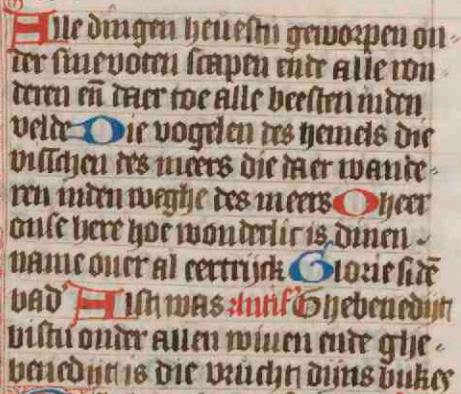 Alle dingen heuestu geworpen on-
der sine voten scapen ende alle ron-
deren en̄ daer toe alle beesten inden
velde Die vogelen des hemels die
visschen des meers die daer wande-
ren inden weghe des meers O heer
onse here hoe wonderlic is dinen
name ouer al eertrijck Glorie si dē
vad' Alst was antif' Ghebenedijt
bistu onder allen wiuen ende ghe-
benedijt is die vrucht dijns bukes